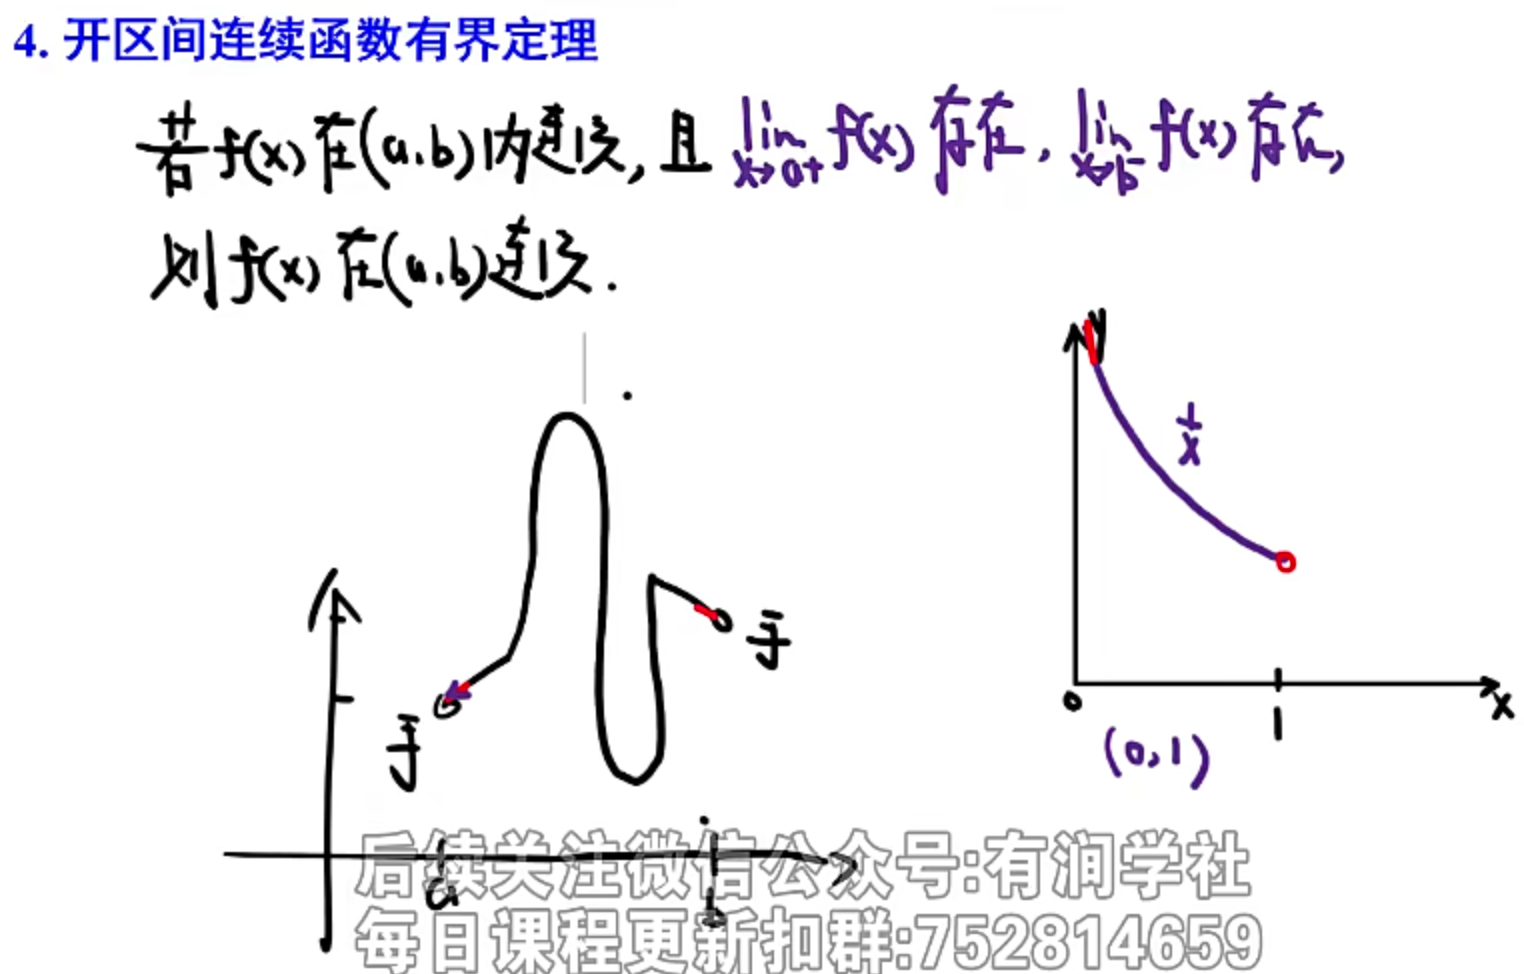 4. 开区间连续函数有界定理
若f(x)在(a,b)内连续,且 lim x→a+ f(x)存在, lim x→b- f(x)存在,
则f(x)在(a,b)连续.
y
1/x
0
1
x
(0,1)
a
b
后续关注微信公众号:有润学社
每日课程更新扣群:752814659